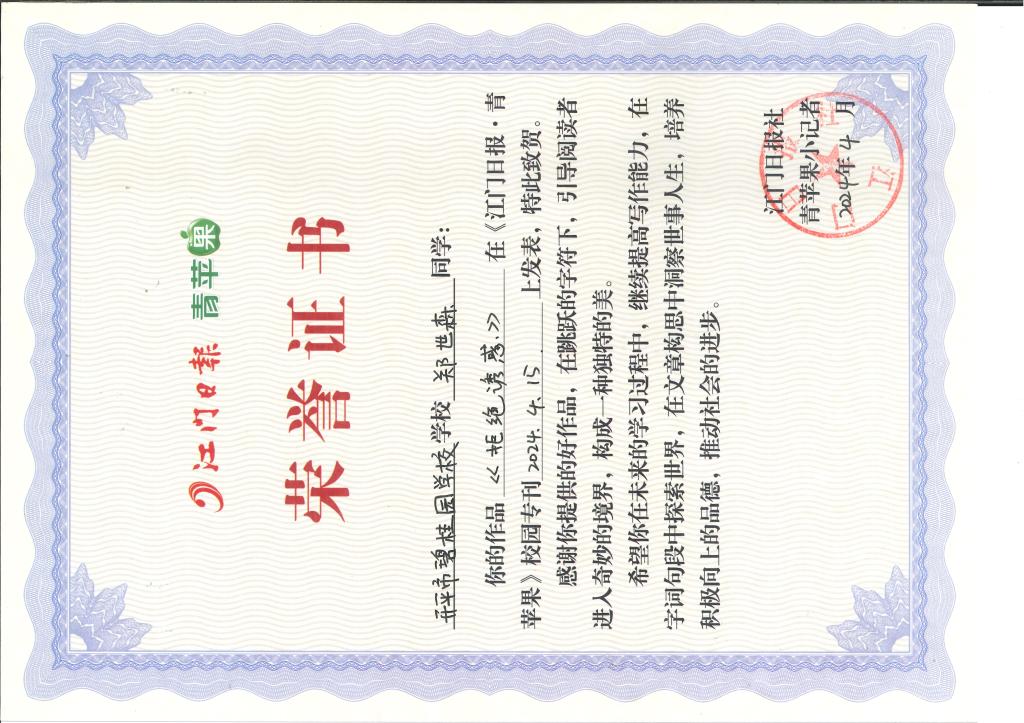 江门日报 青苹果
荣誉证书
开平市碧桂园学校学校 郑世森 同学：
你的作品 《拒绝诱惑》 在《江门日报·青
苹果》校园专刊 2024.4.15 上发表，特此致贺。
感谢你提供的好作品，在跳跃的字符下，引导阅读者
进入奇妙的境界，构成一种独特的美。
希望你在未来的学习过程中，继续提高写作能力，在
字词句段中探索世界，在文章构思中洞察世事人生，培养
积极向上的品德，推动社会的进步。
江门日报社
青苹果小记者
2024年4月
江门日报社